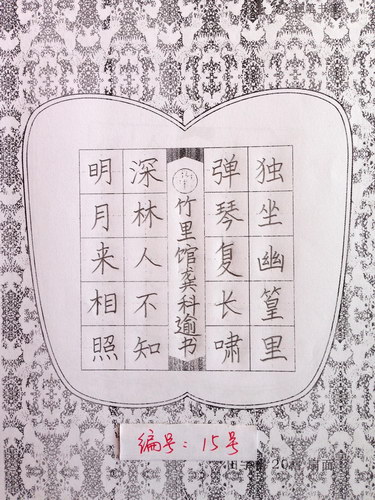 独坐幽篁里
弹琴复长啸
竹里馆龚科逾书
深林人不知
明月来相照
编号：15号